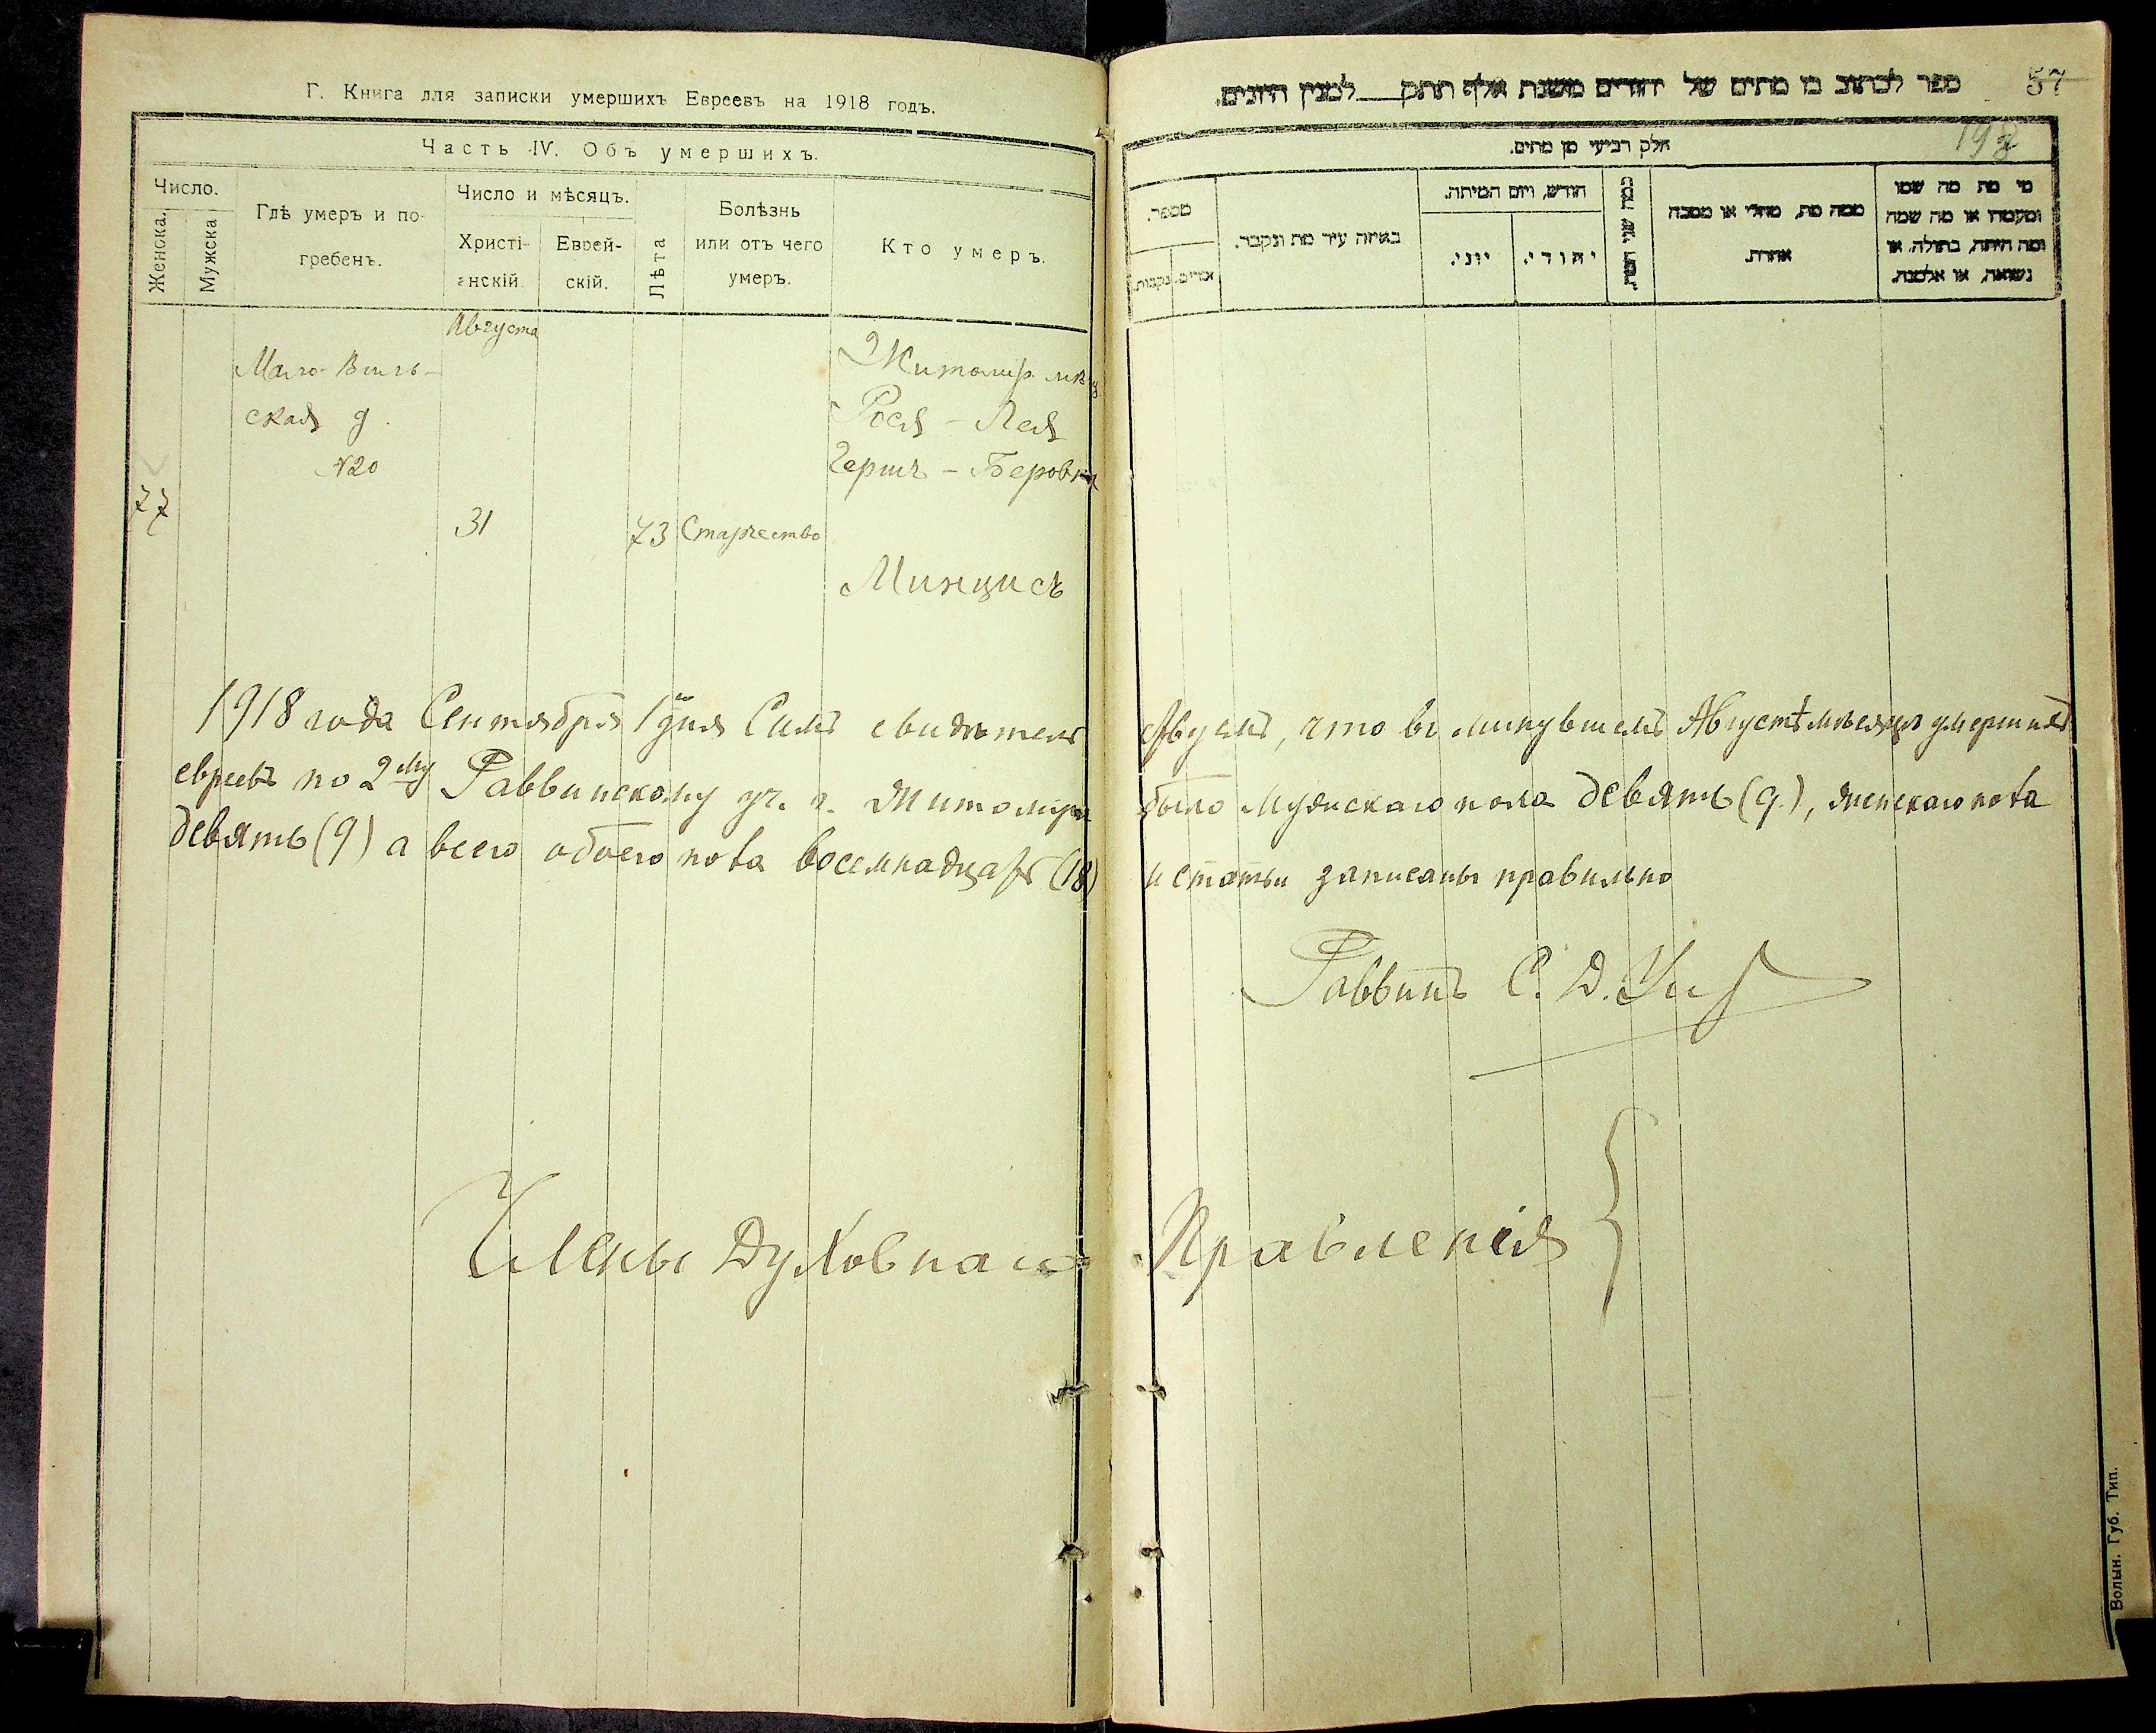 Г. Книга для записки умершихъ Евреевъ на 1918 годъ.
Часть IV. Объ умершихъ.
Число.
Женска.
Мужска
Гдѣ умеръ и по-
гребенъ.
Число и мѣсяцъ.
Христі-
анскій.
Еврей-
скій.
Лѣта
Болѣзнь
или отъ чего
умеръ.
Кто умеръ.
Августа
Мало-Виль-
ская д.
№20
77
31
73
Старчество
Житомир. мѣщ.
Рося-Лея
Гершъ-Беровна
Минцисъ
ספר לכתוב בו מתים של יהודים משנת אלף תתק למנין היונים.
57
198
חלק רביעי מן מתים.
מספר.
זכרים.
נקבות.
באיזה עיר מת ונקבר.
חודש, ויום המיתה.
יוני.
יהודי.
כמה שני המת.
ממה מת, מחלי או מסבה
אחרת.
מי מת מה שמו
ומעמדו או מה שמה
ומה היתה, בתולה, או
נשואה, או אלמנה.
1918 года Сентября 1 дня Симъ свидѣтель ствуемъ, что въ минувшемъ Августѣ мѣсяцѣ умершихъ
евреевъ по 2му Раввинскому уч. г. Житомира было мужскаго пола девять (9), женскаго пола
девять (9) а всего обоего пола восемнадцать (18) и статьи записаны правильно
Раввинъ С. Д.
Члены Духовнаго Правленія
Волын. Губ. Тип.